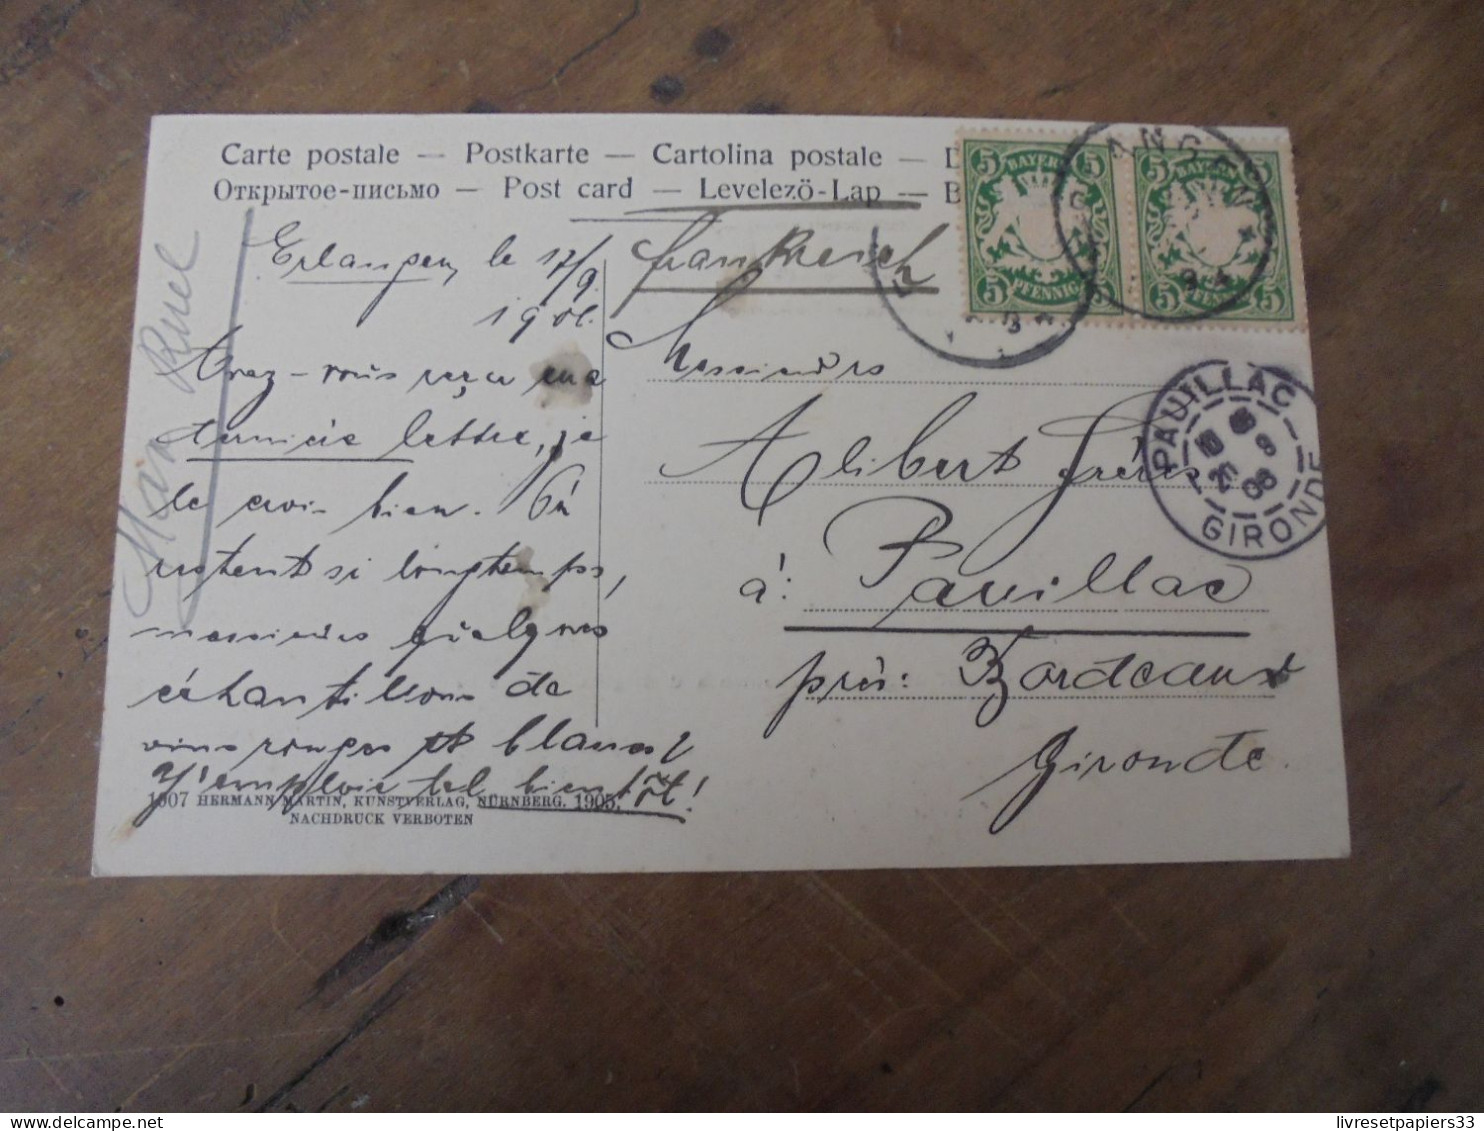 Carte postale — Postkarte — Cartolina postale — D
Открытое-письмо — Post card — Levelező-Lap — B
Erlangen, le 17/9.
1906.
Frankreich
Avez-vous reçu ma
dernière lettre, je
le crois bien. Où
restent si longtemps,
messieurs quelques
échantillons de
vins rouges et blancs?
J'emploie tel bientôt!
1907 HERMANN MARTIN, KUNSTVERLAG, NÜRNBERG. 1905.
NACHDRUCK VERBOTEN
Messieurs
Alibert Frères
à: Pauillac
près: Bordeaux
Gironde.
5 BAYERN 5
5 PFENNIG 5
5 BAYERN
5 PFENNIG 5
PAUILLAC
20 9
06
GIRONDE
livresetpapiers33
delcampe.net